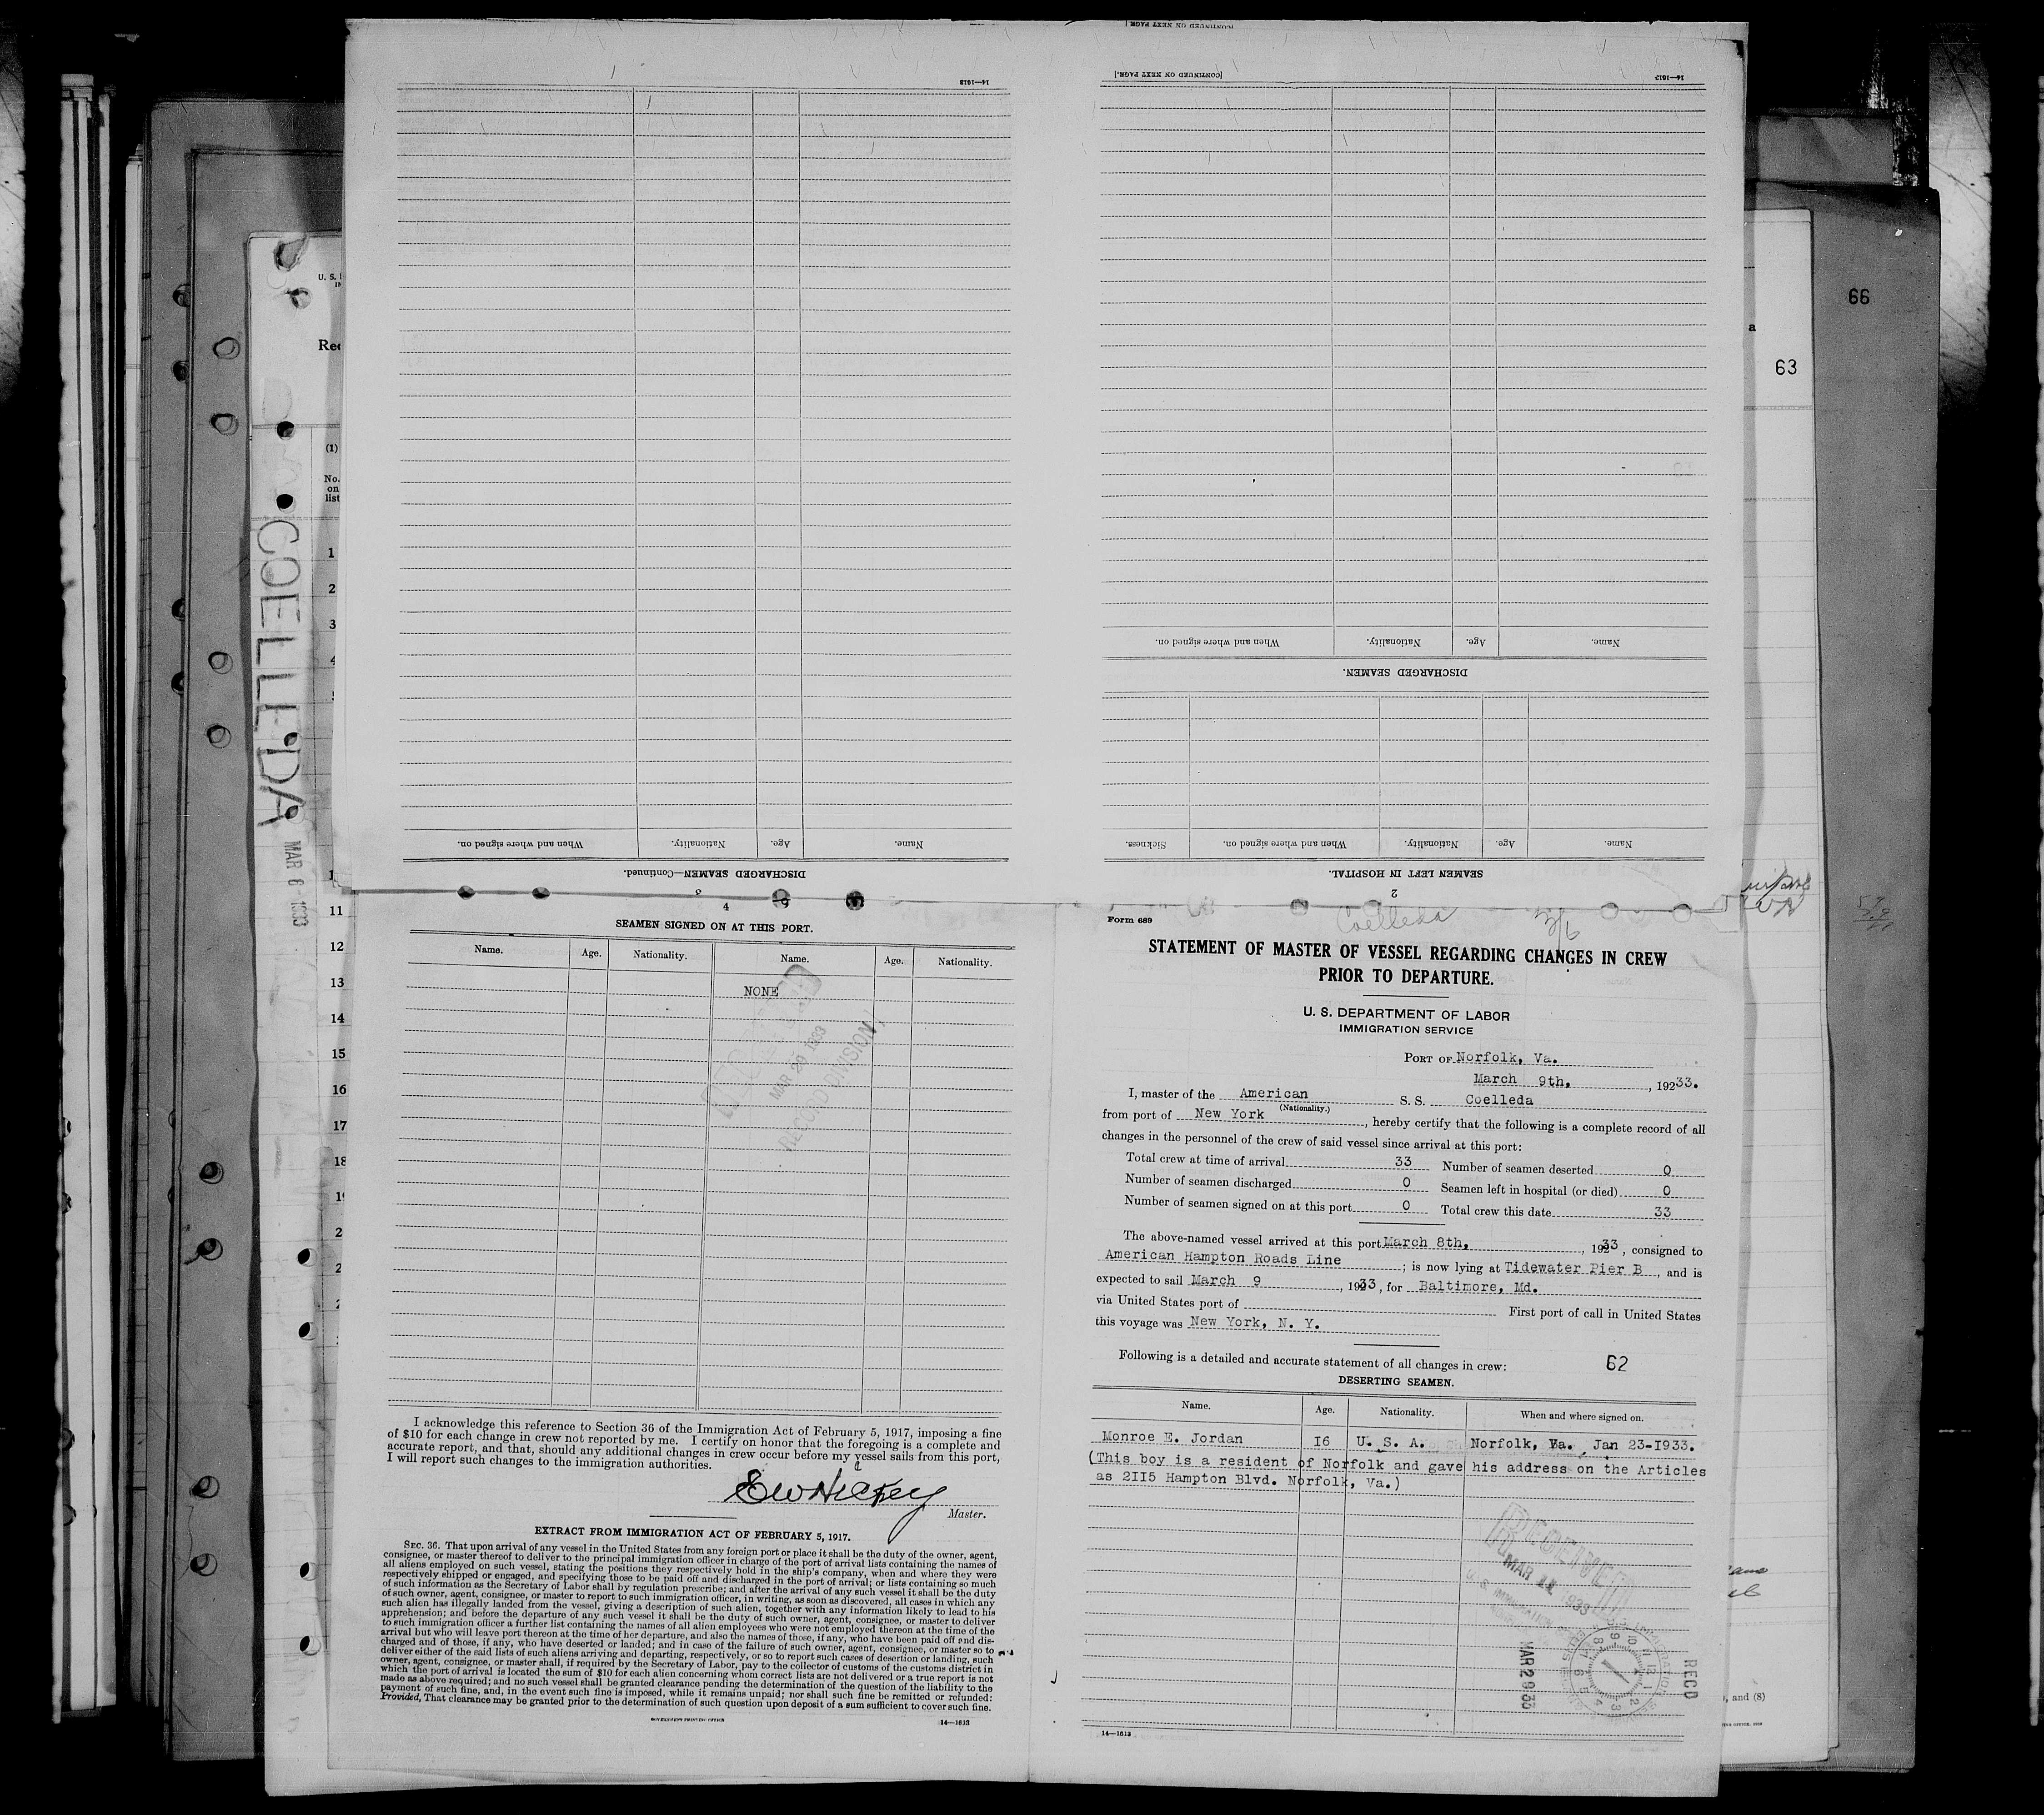 [CONTINUED ON NEXT PAGE]
14—1613
[CONTINUED ON NEXT PAGE.]
14—1613
Name.
Age.
Nationality.
When and where signed on.
DISCHARGED SEAMEN.
Name.
Age.
Nationality.
When and where signed on.
Sickness.
SEAMEN LEFT IN HOSPITAL.
2
Name.
Age.
Nationality.
When and where signed on.
DISCHARGED SEAMEN—Continued.
3
66
63
a
U. S.
Rec
(1)
No.
on
list
1
2
3
4
COELLEDA
MAR 6 1933
11
12
13
14
15
16
17
18
4
SEAMEN SIGNED ON AT THIS PORT.
Name. Age. Nationality. Name. Age. Nationality.
NONE
MAR 29 1933
RECORD DIVISION
I acknowledge this reference to Section 36 of the Immigration Act of February 5, 1917, imposing a fine
of $10 for each change in crew not reported by me. I certify on honor that the foregoing is a complete and
accurate report, and that, should any additional changes in crew occur before my vessel sails from this port,
I will report such changes to the immigration authorities.
EW Hickey
Master.
EXTRACT FROM IMMIGRATION ACT OF FEBRUARY 5, 1917.
SEC. 36. That upon arrival of any vessel in the United States from any foreign port or place it shall be the duty of the owner, agent,
consignee, or master thereof to deliver to the principal immigration officer in charge of the port of arrival lists containing the names of
all aliens employed on such vessel, stating the positions they respectively hold in the ship's company, when and where they were
respectively shipped or engaged, and specifying those to be paid off and discharged in the port of arrival; or lists containing so much
of such information as the Secretary of Labor shall by regulation prescribe; and after the arrival of any such vessel it shall be the duty
of such owner, agent, consignee, or master to report to such immigration officer, in writing, as soon as discovered, all cases in which any
such alien has illegally landed from the vessel, giving a description of such alien, together with any information likely to lead to his
apprehension; and before the departure of any such vessel it shall be the duty of such owner, agent, consignee, or master to deliver
to such immigration officer a further list containing the names of all alien employees who were not employed thereon at the time of the
arrival but who will leave port thereon at the time of her departure, and also the names of those, if any, who have been paid off and dis-
charged and of those, if any, who have deserted or landed; and in case of the failure of such owner, agent, consignee, or master so to
deliver either of the said lists of such aliens arriving and departing, respectively, or so to report such cases of desertion or landing, such
owner, agent, consignee, or master shall, if required by the Secretary of Labor, pay to the collector of customs of the customs district in
which the port of arrival is located the sum of $10 for each alien concerning whom correct lists are not delivered or a true report is not
made as above required; and no such vessel shall be granted clearance pending the determination of the question of the liability to the
payment of such fine, and, in the event such fine is imposed, while it remains unpaid; nor shall such fine be remitted or refunded:
Provided, That clearance may be granted prior to the determination of such question upon deposit of a sum sufficient to cover such fine.
GOVERNMENT PRINTING OFFICE
14—1613
Form 689
Coelleda
3/6
STATEMENT OF MASTER OF VESSEL REGARDING CHANGES IN CREW
PRIOR TO DEPARTURE.
U. S. DEPARTMENT OF LABOR
IMMIGRATION SERVICE
PORT OF Norfolk, Va.
March 9th, , 19233.
I, master of the American S. S. Coelleda
(Nationality.)
from port of New York , hereby certify that the following is a complete record of all
changes in the personnel of the crew of said vessel since arrival at this port:
Total crew at time of arrival 33 Number of seamen deserted 0
Number of seamen discharged 0 Seamen left in hospital (or died) 0
Number of seamen signed on at this port 0 Total crew this date 33
The above-named vessel arrived at this port March 8th, , 1933, consigned to
American Hampton Roads Line ; is now lying at Tidewater Pier B , and is
expected to sail March 9 , 1933, for Baltimore, Md.
via United States port of First port of call in United States
this voyage was New York, N. Y.
Following is a detailed and accurate statement of all changes in crew: 62
DESERTING SEAMEN.
Name. Age. Nationality. When and where signed on.
Monroe E. Jordan 16 U. S. A. Norfolk, Va., Jan 23-1933.
(This boy is a resident of Norfolk and gave his address on the Articles
as 2115 Hampton Blvd. Norfolk, Va.)
RECEIVED
MAR 1933
MAR 29 33
RECD
14—1613
, and (8)